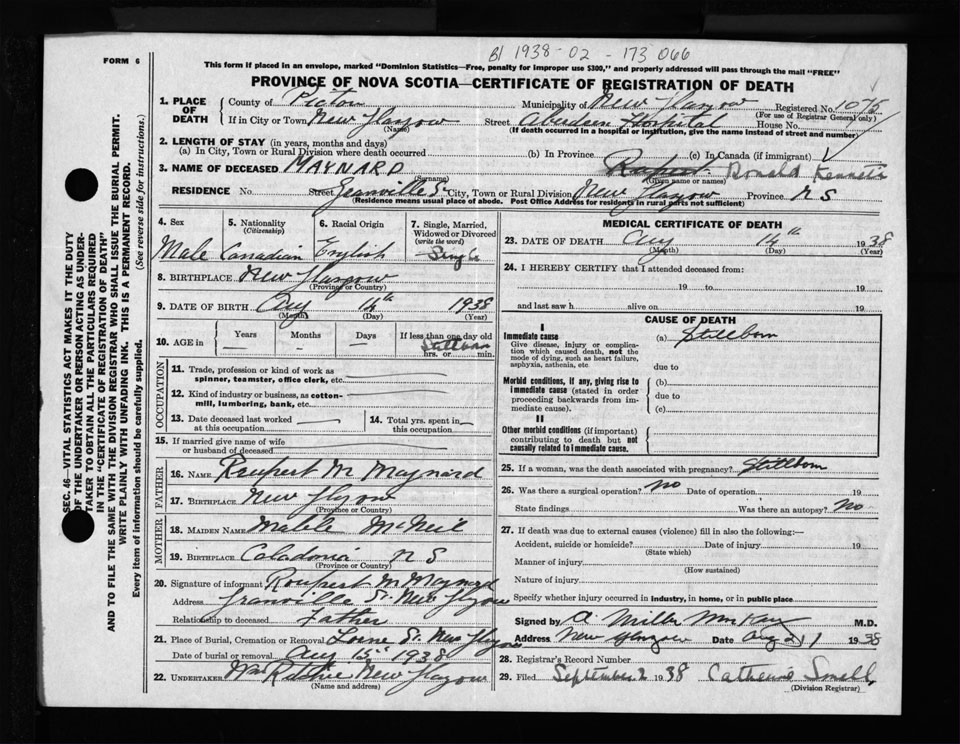 B1 1938-02-173066
FORM 6
This form if placed in an envelope, marked "Dominion Statistics—Free, penalty for improper use $300," and properly addressed will pass through the mail "FREE"
PROVINCE OF NOVA SCOTIA—CERTIFICATE OF REGISTRATION OF DEATH
SEC. 46—VITAL STATISTICS ACT MAKES IT THE DUTY
OF THE UNDERTAKER OR PERSON ACTING AS UNDER-
TAKER TO OBTAIN ALL THE PARTICULARS REQUIRED
IN THE "CERTIFICATE OF REGISTRATION OF DEATH"
AND TO FILE THE SAME WITH THE DIVISION REGISTRAR WHO SHALL ISSUE THE BURIAL PERMIT.
WRITE PLAINLY WITH UNFADING INK. THIS IS A PERMANENT RECORD.
Every item of information should be carefully supplied. (See reverse side for instructions.)
1. PLACE OF DEATH
County of Pictou Municipality of New Glasgow Registered No. 1075
(For use of Registrar General only)
If in City or Town New Glasgow Street Aberdeen Hospital House No.
(Name) (If death occurred in a hospital or institution, give the name instead of street and number)
2. LENGTH OF STAY (in years, months and days)
(a) In City, Town or Rural Division where death occurred (b) In Province (c) In Canada (if immigrant)
3. NAME OF DECEASED MAYNARD Rupert Donald Kenneth
(Surname) (Given name or names)
RESIDENCE No. Street Granville St City, Town or Rural Division New Glasgow Province N S
(Residence means usual place of abode. Post Office Address for residents in rural parts not sufficient)
4. Sex 5. Nationality (Citizenship) 6. Racial Origin 7. Single, Married, Widowed or Divorced (write the word)
Male Canadian English Single
8. BIRTHPLACE New Glasgow
(Province or Country)
9. DATE OF BIRTH Aug 14th 1938
(Month) (Day) (Year)
10. AGE in Years Months Days If less than one day old
— — — Stillborn
hrs. or min.
OCCUPATION
11. Trade, profession or kind of work as
spinner, teamster, office clerk, etc.
12. Kind of industry or business, as cotton-
mill, lumbering, bank, etc.
13. Date deceased last worked
at this occupation
14. Total yrs. spent in
this occupation
15. If married give name of wife
or husband of deceased
FATHER
16. NAME Roupert M Maynard
17. BIRTHPLACE New Glasgow
(Province or Country)
MOTHER
18. MAIDEN NAME Mabile McNeil
19. BIRTHPLACE Caladonia N S
(Province or Country)
20. Signature of informant Roupert M Maynard
Address Granville St. New Glasgow
Relationship to deceased Father
21. Place of Burial, Cremation or Removal Lorne St. New Glasgow
Date of burial or removal Aug 15th 1938
22. UNDERTAKER Wm Ritchie New Glasgow
(Name and address)
MEDICAL CERTIFICATE OF DEATH
23. DATE OF DEATH Aug 14th 1938
(Month) (Day) (Year)
24. I HEREBY CERTIFY that I attended deceased from:
19 to 19
and last saw h alive on 19
CAUSE OF DEATH
I
Immediate cause (a) Stillborn
Give disease, injury or complica-
tion which caused death, not the
mode of dying, such as heart failure,
asphyxia, asthenia, etc. due to
Morbid conditions, if any, giving rise to (b)
immediate cause (stated in order due to
proceeding backwards from im-
mediate cause). (c)
II
Other morbid conditions (if important)
contributing to death but not
causally related to immediate cause.
25. If a woman, was the death associated with pregnancy? Stillborn
26. Was there a surgical operation? No Date of operation 19
State findings Was there an autopsy? No
27. If death was due to external causes (violence) fill in also the following:—
Accident, suicide or homicide? Date of injury 19
(State which)
Manner of injury
(How sustained)
Nature of injury
Specify whether injury occurred in industry, in home, or in public place
Signed by A. Miller McKay M.D.
Address New Glasgow Date Aug 1938
28. Registrar's Record Number
29. Filed September 2 1938 Catherine Small
(Division Registrar)